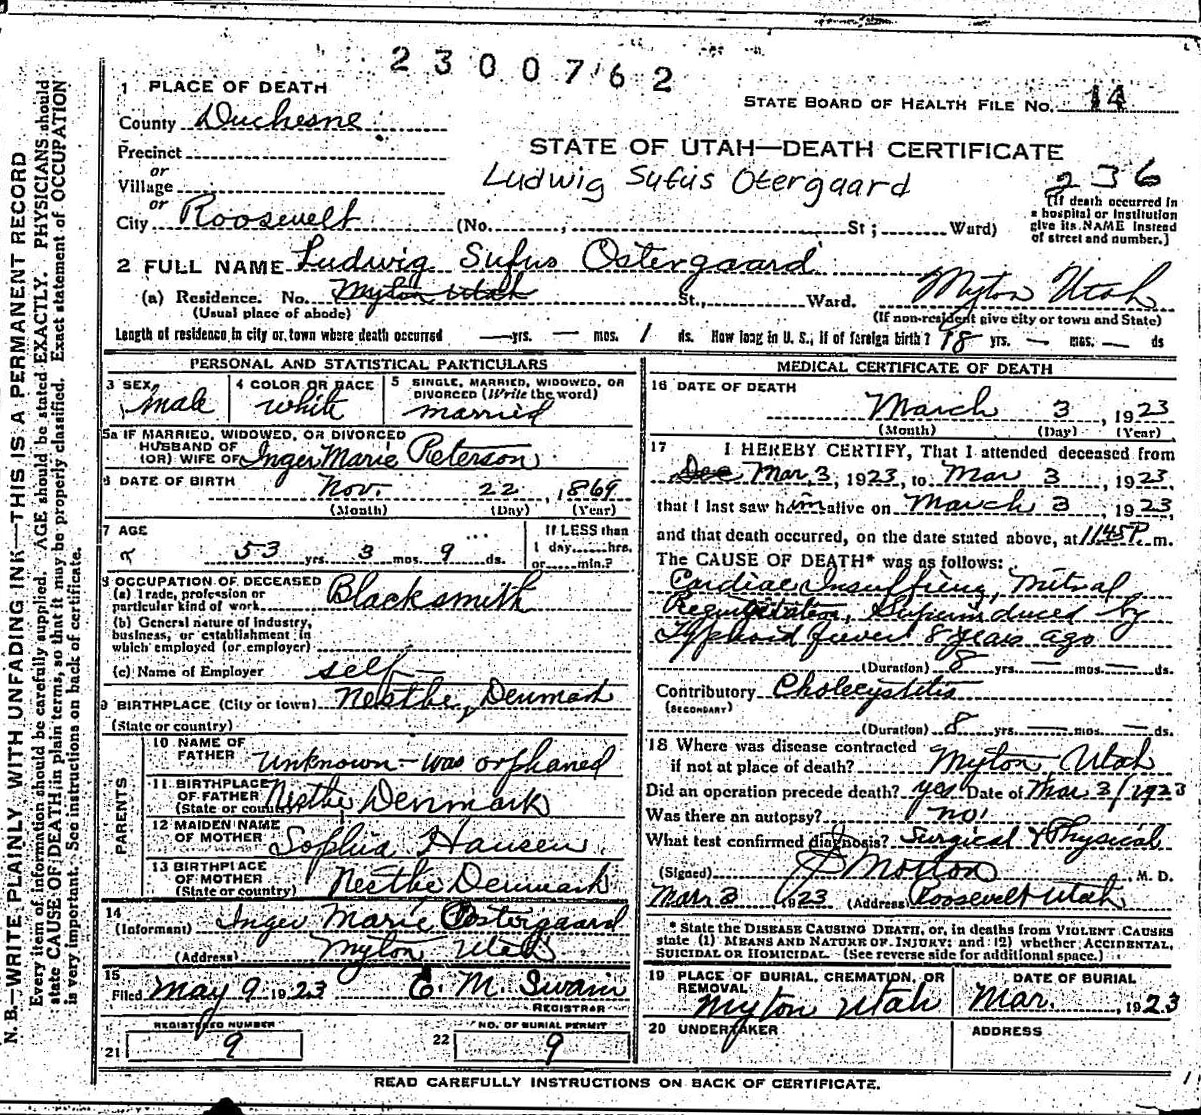 2300762
1 PLACE OF DEATH
STATE BOARD OF HEALTH FILE No. 14
County Duchesne
STATE OF UTAH—DEATH CERTIFICATE
Precinct
or
Village
Ludwig Sufus Otergaard
236
or
City Roosevelt (No. , St; Ward)
(If death occurred in a hospital or institution give its NAME instead of street and number.]
2 FULL NAME Ludwig Sufus Ostergaard
(a) Residence. No. Myton Utah St., Ward. Myton Utah
(Usual place of abode) (If non-resident give city or town and State)
Length of residence in city or town where death occurred — yrs. — mos. 1 ds. How long in U. S., if of foreign birth? 18 yrs. — mos. — ds
PERSONAL AND STATISTICAL PARTICULARS
3 SEX male
4 COLOR OR RACE white
5 SINGLE, MARRIED, WIDOWED, OR DIVORCED (Write the word) married
5a IF MARRIED, WIDOWED, OR DIVORCED
HUSBAND OF
(OR) WIFE OF Inger Marie Peterson
6 DATE OF BIRTH Nov. 22, 1869
(Month) (Day) (Year)
7 AGE 53 yrs 3 mos. 9 ds.
If LESS than
1 day......hrs.
or......min.?
8 OCCUPATION OF DECEASED
(a) Trade, profession or
particular kind of work Blacksmith
(b) General nature of industry,
business, or establishment in
which employed (or employer)
(c) Name of Employer self
9 BIRTHPLACE (City or town) Nesthe, Denmark
(State or country)
PARENTS
10 NAME OF
FATHER Unknown—was orphaned
11 BIRTHPLACE
OF FATHER
(State or country) Nesthe Denmark
12 MAIDEN NAME
OF MOTHER Sophia Hansen
13 BIRTHPLACE
OF MOTHER
(State or country) Nesthe Denmark
14
(Informant) Inger Marie Ostergaard
(Address) Myton Utah
15
Filed May 9 1923 E. M. Swain
REGISTRAR
REGISTERED NUMBER
21 9
NO. OF BURIAL PERMIT
22 9
MEDICAL CERTIFICATE OF DEATH
16 DATE OF DEATH
March 3, 1923
(Month) (Day) (Year)
17 I HEREBY CERTIFY, That I attended deceased from
Dec Mar. 3, 1923, to Mar 3, 1923,
that I last saw him alive on March 3, 1923,
and that death occurred, on the date stated above, at 1145 P. m.
The CAUSE OF DEATH* was as follows:
Cardiac Insuffiency, Mitral
Regurgitation, Superinduced by
Typhoid fever 8 years ago
(Duration) 8 yrs. — mos. — ds.
Contributory Cholecystitis
(SECONDARY)
(Duration) 8 yrs. — mos. — ds.
18 Where was disease contracted
if not at place of death? Myton Utah
Did an operation precede death? yes Date of Mar 3/1923
Was there an autopsy? no
What test confirmed diagnosis? Surgical & Physical
(Signed) Morton M. D.
Mar 3 1923 (Address) Roosevelt Utah
* State the DISEASE CAUSING DEATH, or, in deaths from VIOLENT CAUSES
state (1) MEANS AND NATURE OF INJURY; and (2) whether ACCIDENTAL,
SUICIDAL OR HOMICIDAL. (See reverse side for additional space.)
19 PLACE OF BURIAL, CREMATION, OR
REMOVAL Myton Utah
DATE OF BURIAL
Mar. , 1923
20 UNDERTAKER
ADDRESS
READ CAREFULLY INSTRUCTIONS ON BACK OF CERTIFICATE.
N. B.—WRITE PLAINLY WITH UNFADING INK—THIS IS A PERMANENT RECORD
Every item of information should be carefully supplied. AGE should be stated EXACTLY. PHYSICIANS should
state CAUSE OF DEATH in plain terms, so that it may be properly classified. Exact statement of OCCUPATION
is very important. See instructions on back of certificate.